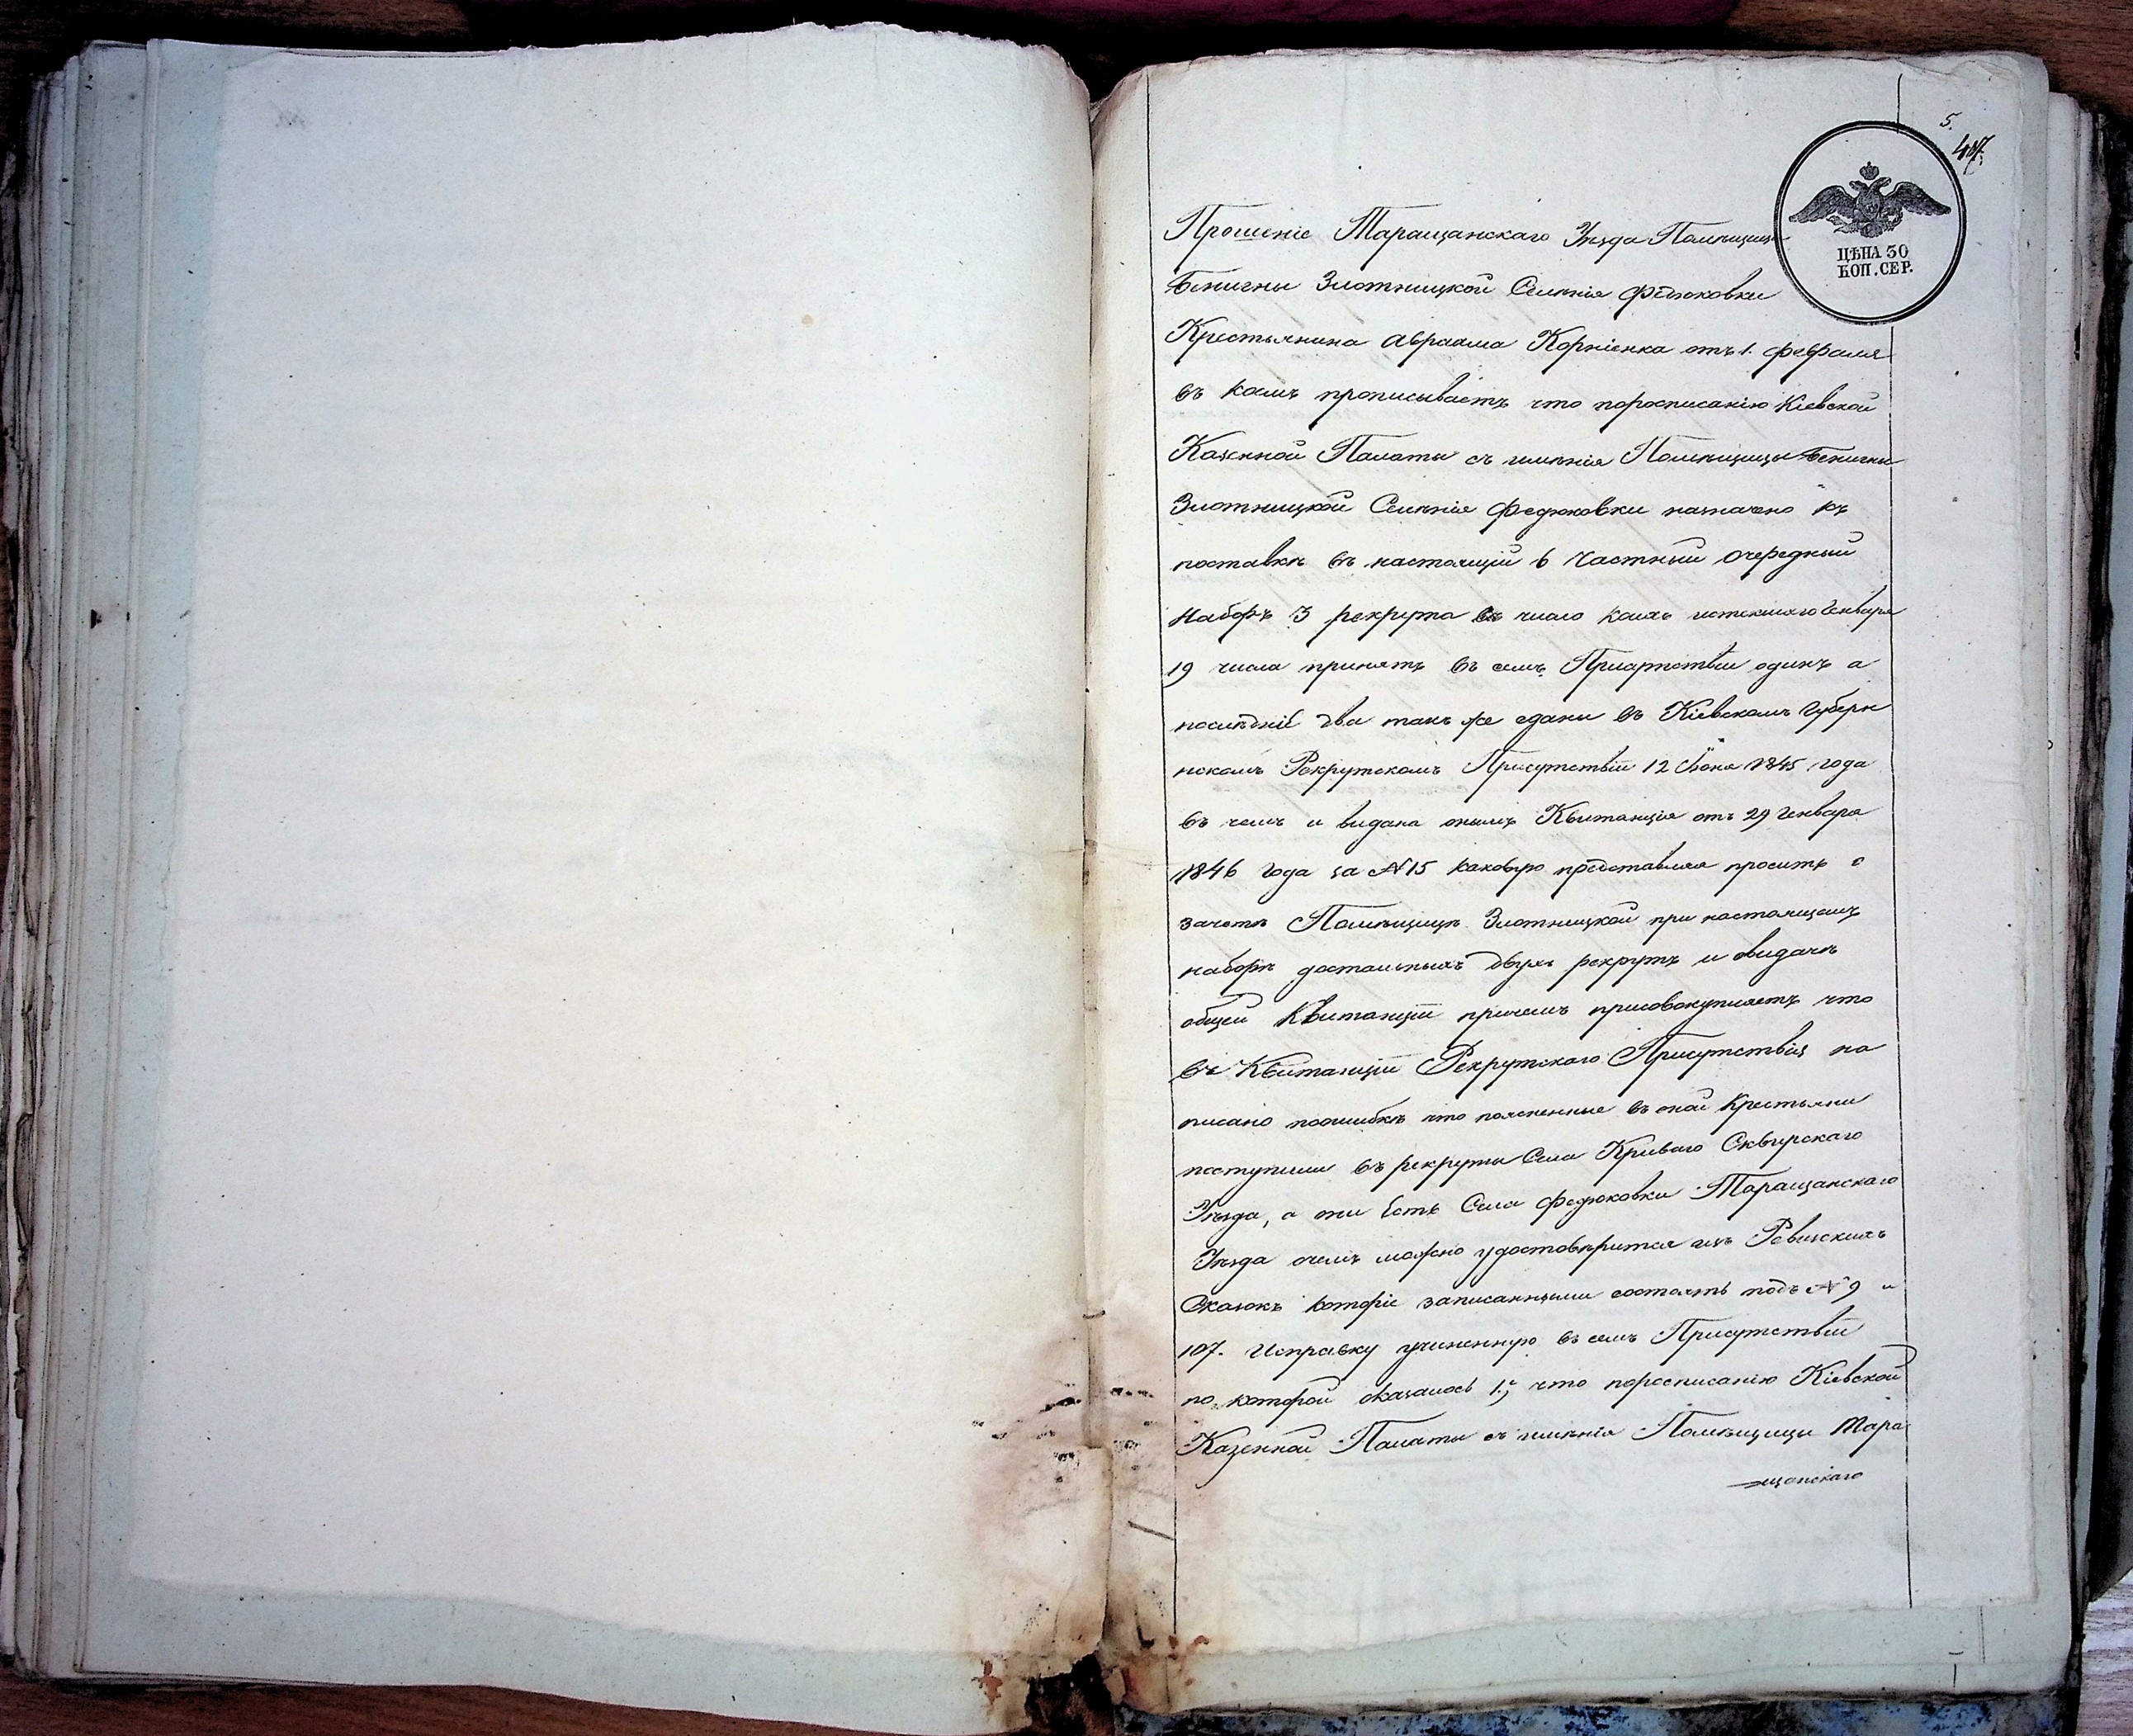 5.
ЦѢНА 30
КОП. СЕР.
Прошеніе Таращанскаго Уѣзда Помѣщицы
Бенигны Злотницкой Селенія Федюковки
Крестьянина Авраама Корніенка отъ 1. февраля
въ коемъ прописываетъ что поросписанію Кіевской
Казенной Палаты съ имѣнія Помѣщицы Бенигны
Злотницкой Селенія Федюковки назначено къ
поставкѣ въ настоящій 6 Частный очередный
Наборъ 3 рекрута въ число коихъ истекшаго Генваря
19 числа принятъ въ семъ Присутствіи одинъ а
послѣдніе два такъ же сданы въ Кіевскомъ Губерн
нскомъ Рекрутскомъ Присутствіи 12 Іюня 1845 года
въ чемъ и видана онымъ Квитанція отъ 29 Генваря
1846 года за №15 каковую представляя проситъ о
зачетѣ Помѣщицѣ Злотницкой при настоящемъ
наборѣ достальныхъ двухъ рекрутъ и овидачѣ
общей Квитанціи причемъ присовокупляетъ что
въ Квитанціи Рекрутскаго Присутствія на
писано поошибкѣ что поясненные въ оной Крестьяни
поступили въ рекруты Села Криваго Сквирскаго
Уѣзда, а они есть Села Федюковки Таращанскаго
Уѣзда очемъ можно удостовѣрится изъ Ревизскихъ
Сказокъ которіе записанными состоятъ подъ №9 и
107. Исправку учиненную въ семъ Присутствіи
по которой оказалось 1.е, что поросписанію Кіевской
Казенной Палаты съ имѣнія Помѣщицы Тара
щанскаго